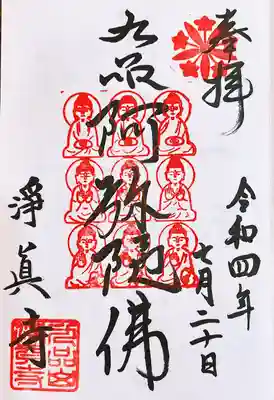 奉拝
令和四年
七月二十日
九品阿弥陀佛
淨眞寺